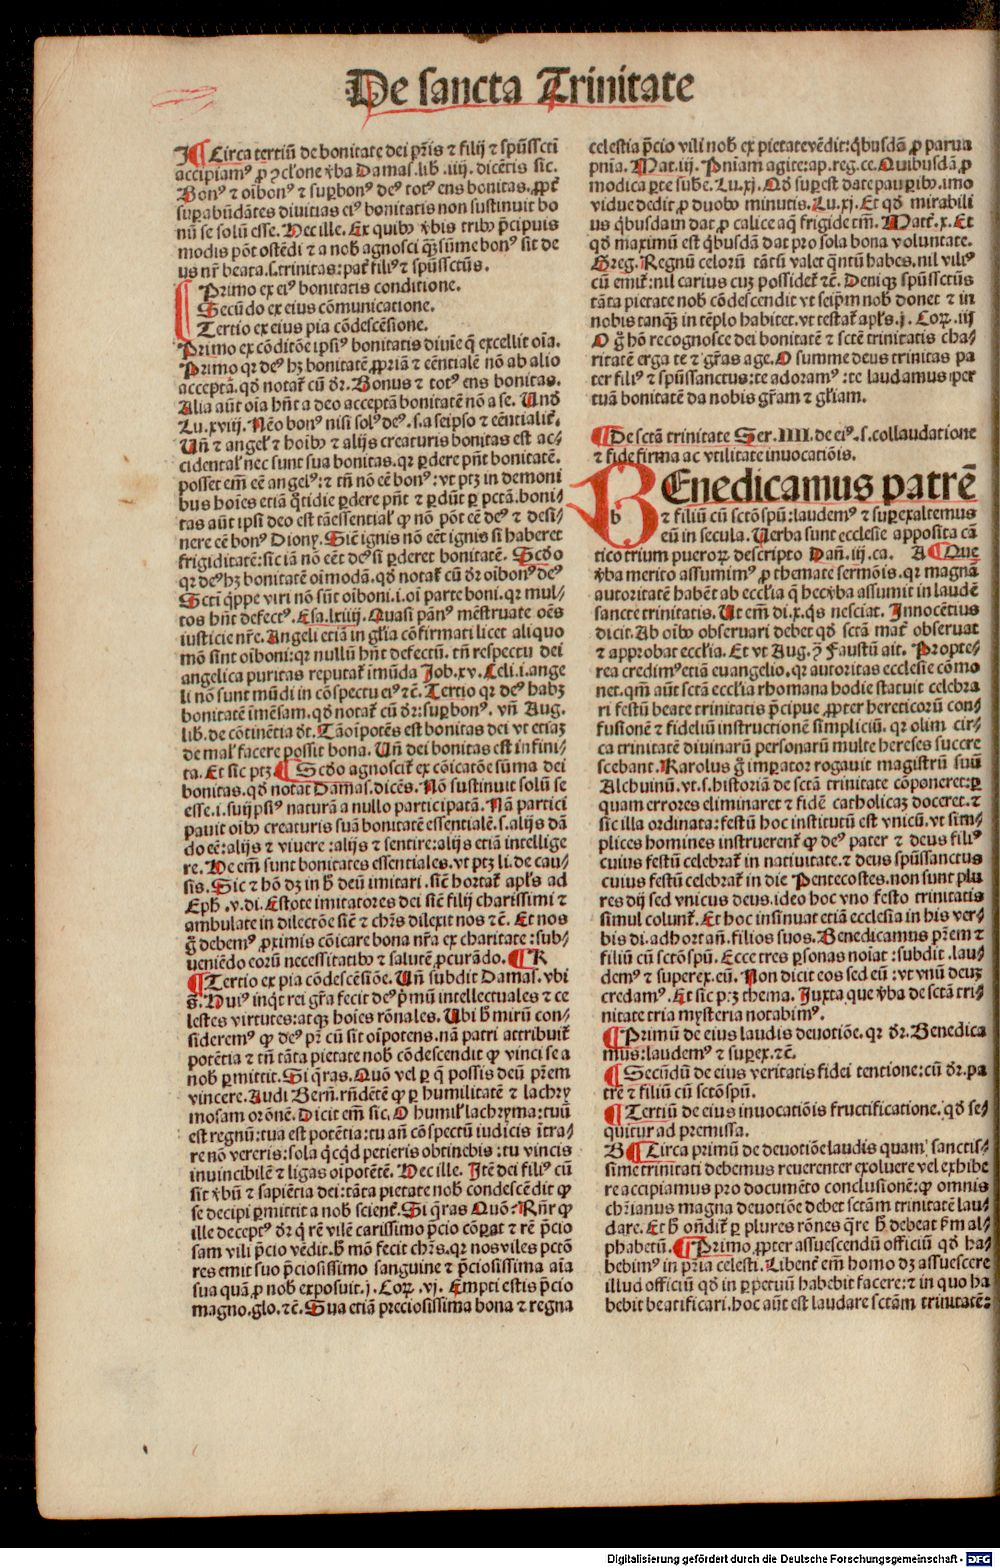 De sancta Trinitate
I ¶ Circa tertiū de bonitate dei pr̄is ⁊ filij ⁊ spūssct̄i
accipiamꝰ ꝓ ꝯclone v̄ba Damas. lib. iiij. dicētis sic.
Bonꝰ ⁊ oībonꝰ ⁊ suꝑbonꝰ deꝰ totꝰ ens bonitas. ꝓpt̄
suꝑabūdātes diuitias eiꝰ bonitatis non sustinuit bo
nū se solū esse. Hec ille. Ex quibꝰ v̄bis tribꝰ p̄cipuis
modis pōt ostēdi ⁊ a nob̄ agnosci qꝫ sūme bonꝰ sit de
us nr̄ beata. s. trinitas: pat̄ filiꝰ ⁊ spūssctūs.
¶ Primo ex eiꝰ bonitatis conditione.
Secūdo ex eius cōmunicatione.
Tertio ex eius pia cōdescēsione.
Primo ex cōditōe ipsiꝰ bonitatis diuīe q̄ excellit oīa.
Primo qr deꝰ hꝫ bonitatē ꝓpriā ⁊ eēntialē nō ab alio
acceptā. qđ notat̄ cū dr̄. Bonus ⁊ totꝰ ens bonitas.
Alia aūt oīa hn̄t a deo acceptā bonitatē nō a se. Unđ
Lu. xviij. Nēo bonꝰ nisi solꝰ deꝰ. s. a seipso ⁊ eēntialit̄.
Un̄ ⁊ angeloꝝ ⁊ hoībꝰ ⁊ alijs creaturis bonitas est ac⸗
cidental̄ nec sunt sua bonitas. qr ꝑdere pn̄t bonitatē.
posset em̄ eē angelꝰ: ⁊ tn̄ nō eē bonꝰ: vt ptꝫ in demoni
bus hoīes etiā q̄tidie ꝑdere pn̄t ⁊ ꝑdūt ꝑ pctā. boni⸗
tas aūt ipsi deo est tā essential̄ ꝙ nō pōt eē deꝰ ⁊ desi⸗
nere eē bonꝰ Diony. Sic̄ ignis nō eēt ignis si haberet
frigiditatē: sic iā nō eēt deꝰ si ꝑderet bonitatē. Scđo
qr deꝰ hꝫ bonitatē oīmodā. qđ notat̄ cū dr̄ oībonꝰ deꝰ
Scti q̄ppe viri nō sūt oīboni. i. oī parte boni. qr mul⸗
tos hn̄t defectꝰ. Esa. lxiiij. Quasi pānꝰ mēstruate oēs
iusticie nr̄e. Angeli etiā in gl̄ia cōfirmati licet aliquo
mō sint oīboni: qr nullū hn̄t defectū. tn̄ respectu dei
angelica puritas reputat̄ īmūda Job. xv. Celi. i. ange
li nō sunt mūdi in cōspectu eiꝰ ⁊c̄. Tertio qr deꝰ habꝫ
bonitatē īmēsam. qđ notat̄ cū dr̄: suꝑbonꝰ. vn̄ Aug.
lib. de cōtinētia đt. Tā oīpotēs est bonitas dei vt etiaꝫ
de mal̄ facere possit bona. Un̄ dei bonitas est infini⸗
ta. Et sic ptꝫ ¶ Scđo agnoscit̄ ex cōicatōe sūma dei
bonitas. qđ notat Damas. dicēs. Nō sustinuit solū se
esse. i. sui ipsiꝰ naturā a nullo participatā. Nā partici
pauit oībꝰ creaturis suā bonitatē essentialē. s. alijs dā
do eē: alijs ⁊ viuere: alijs ⁊ sentire: alijs etiā intellige
re. He em̄ sunt bonitates essentiales. vt ptꝫ li. de cau⸗
sis. Sic ⁊ hō dꝫ in h̄ deū imitari. sic̄ hortat̄ apl̄s ad
Eph̄. v. di. Estote imitatores dei sic̄ filij charissimi ⁊
ambulate in dilectōe sic̄ ⁊ chr̄s dilexit nos ⁊c̄. Et nos
g̊ debemꝰ ꝓximis cōicare bona nr̄a ex charitate: sub⸗
ueniēdo eorū necessitatibꝰ ⁊ salutē ꝓcurādo. ¶ K
¶ Tertio ex pia cōdescēsiōe. Un̄ subdit Damas. vbi
s̄. Huiꝰ inq̄t rei gr̄a fecit deꝰ p̄mū intellectuales ⁊ ce
lestes virtutes: atqꝫ hoīes rōnales. Ubi h̄ mirū con⸗
sideremꝰ ꝙ deꝰ pr̄ cū sit oīpotens. nā patri attribuit̄
potētia ⁊ tn̄ tāta pietate nob̄ cōdescendit ꝙ vinci se a
nob̄ ꝑmittit. Si q̄ras. Quō vel ꝑ q̄ possis deū pr̄em
vincere. Audi Bern̄. rn̄dētē ꝙ ꝑ humilitatē ⁊ lachry
mosam orōnē. Dicit em̄ sic. O humil̄ lachryma: tuū
est regnū: tua est potētia: tu an̄ cōspectū iudicis ītra⸗
re nō vereris: sola q̄cqđ petieris obtinebis: tu vincis
inuincibilē ⁊ ligas oīpotētē. Hec ille. Itē dei filiꝰ cū
sit v̄bū ⁊ sapiētia dei: tāta pietate nob̄ condescēdit ꝙ
se decipi ꝑmittit a nob̄ scient̄. Si q̄ras Quō: Rn̄r ꝙ
ille deceptꝰ dr̄ q̄ rē vilē carissimo p̄cio cōꝑat ⁊ rē p̄cio
sam vili p̄cio vēdit. h̄ mō fecit chr̄s. qr nos viles pctō
res emit suo p̄ciosissimo sanguine ⁊ p̄ciosissima aīa
sua quā ꝓ nob̄ exposuit. j. Coꝝ. vj. Empti estis p̄cio
magno. glo. ⁊c̄. Sua etiā preciosissima bona ⁊ regna
celestia p̄cio vili nob̄ ex pietate vēdit: q̄busdā ꝓ parua
pn̄ia. Mat. iij. Pn̄iam agite: ap. reg. ce. Quibusdā ꝓ
modica ꝑte sube. Lu. xj. Qđ suꝑest date pauꝑibꝰ. imo
vidue dedit ꝓ duobꝰ minutis. Lu. xj. Et qđ mirabili
us q̄busdam dat ꝓ calice aq̄ frigide tm̄. Matt̄. x. Et
qđ maximū est q̄busdā dat pro sola bona voluntate.
Greg. Regnū celorū tātū valet q̄ntū habes. nil viliꝰ
cū emit̄: nil carius cuꝫ possidet̄ ⁊c̄. Deniqꝫ spūssctūs
tāta pietate nob̄ cōdescendit vt seip̄m nob̄ donet ⁊ in
nobis tanqꝫ in tēplo habitet. vt testat̄ apl̄s. j. Coꝝ. iij
O g̊ hō recognosce dei bonitatē ⁊ sctē trinitatis cha⸗
ritatē erga te ⁊ gr̄as age. O summe deus trinitas pa
ter filiꝰ ⁊ spūssanctus: te adoramꝰ: te laudamus per
tuā bonitatē da nobis gr̄am ⁊ gl̄iam.
¶ De sctā trinitate Ser. IIII. de eiꝰ. s. collaudatione
⁊ fide firma ac vtilitate inuocatiōis.
BEnedicamus patrē
b
⁊ filiū cū sctō spū: laudemꝰ ⁊ suꝑexaltemus
eū in secula. Uerba sunt ecclesie apposita cā
tico trium pueroꝝ descripto Dan̄. iij. ca. A ¶ Que
v̄ba merito assumimꝰ ꝓ themate sermōis. qr magnā
autoritatē habēt ab eccl̄ia q̄ hec v̄ba assumit in laudē
sancte trinitatis. Ut em̄ di. x. qs nesciat. Innocētius
dicit. Ab oībꝰ obseruari debet qđ sctā mat̄ obseruat
⁊ approbat eccl̄ia. Et vt Aug. ꝯ̄ Faustū ait. Propte⸗
rea credimꝰ etiā euangelio. qr autoritas ecclesie cōmo
net. qm̄ aūt sctā eccl̄ia rhomana hodie statuit celebra
ri festū beate trinitatis p̄cipue ꝓpter hereticorū con⸗
fusionē ⁊ fideliū instructionē simpliciū. qr olim cir⸗
ca trinitatē diuinarū personarū multe hereses succre
scebant. Karolus g̊ imꝑator rogauit magistrū suū
Alchuinū. vt. s. historiā de sctā trinitate cōponeret: ꝑ
quam errores eliminaret ⁊ fidē catholicaꝫ doceret. ⁊
sic illa ordinata: festū hoc institutū est vnicū. vt sim⸗
plices homines instruerent̄ ꝙ deꝰ pater ⁊ deus filiꝰ
cuius festū celebrat̄ in natiuitate. ⁊ deus spūssanctus
cuius festū celebrat̄ in die Pentecostes. non sunt plu
res dij sed vnicus deus. ideo hoc vno festo trinitatis
simul colunt̄. Et hoc insinuat etiā ecclesia in his ver⸗
bis di. adhortan̄. filios suos. Benedicamus pr̄em ⁊
filiū cū sctō spū. Ecce tres ꝑsonas noīat: subdit. lau⸗
demꝰ ⁊ superex. eū. Non dicit eos sed eū: vt vnū deuꝫ
credamꝰ. Et sic ptꝫ thema. Juxta que v̄ba de sctā tri⸗
nitate tria mysteria notabimꝰ.
¶ Primū de eius laudis deuotiōe. qr dr̄. Benedica
mus: laudemꝰ ⁊ suꝑex. ⁊c̄.
¶ Secūdū de eius veritatis fidei tentione: cū dr̄. pa
trē ⁊ filiū cū sctō spū.
¶ Tertiū de eius inuocatiōis fructificatione. qđ se⸗
quitur ad premissa.
B ¶ Circa primū de deuotiōe laudis quam sanctis⸗
sime trinitati debemus reuerenter exoluere vel exhibe
re accipiamus pro documēto conclusionē: ꝙ omnis
chr̄ianus magna deuotiōe debet sctām trinitatē lau⸗
dare. Et h̄ on̄dit̄ ꝑ plures rōnes q̄re h̄ debeat ẜm al⸗
phabetū. ¶ Primo ꝓpter assuescendū officiū qđ ha⸗
bebimꝰ in pr̄ia celesti. Libent̄ em̄ homo dꝫ assuescere
illud officiū qđ in ꝑpetuū habebit facere: ⁊ in quo ha
bebit beatificari. hoc aūt est laudare sctām trinitatē:
Digitalisierung gefördert durch die Deutsche Forschungsgemeinschaft - DFG